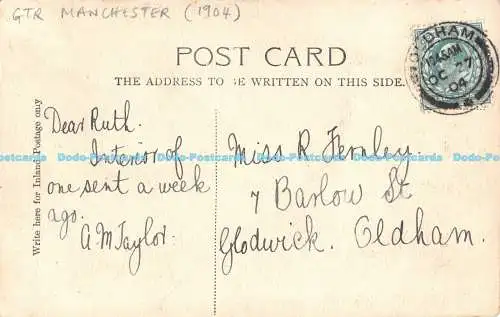 GTR MANCHESTER (1904)
POST CARD
THE ADDRESS TO BE WRITTEN ON THIS SIDE.
Write here for Inland Postage only
Dear Ruth.
Interior of
one sent a week
ago.
A. M Taylor.
Miss R Fernley
7 Barlow St
Glodwick. Oldham.
OLDHAM
OC 27
04
Dodo-Postcards Dodo-Postcards Dodo-Postcards Dodo-Postcards Dodo-Postcards